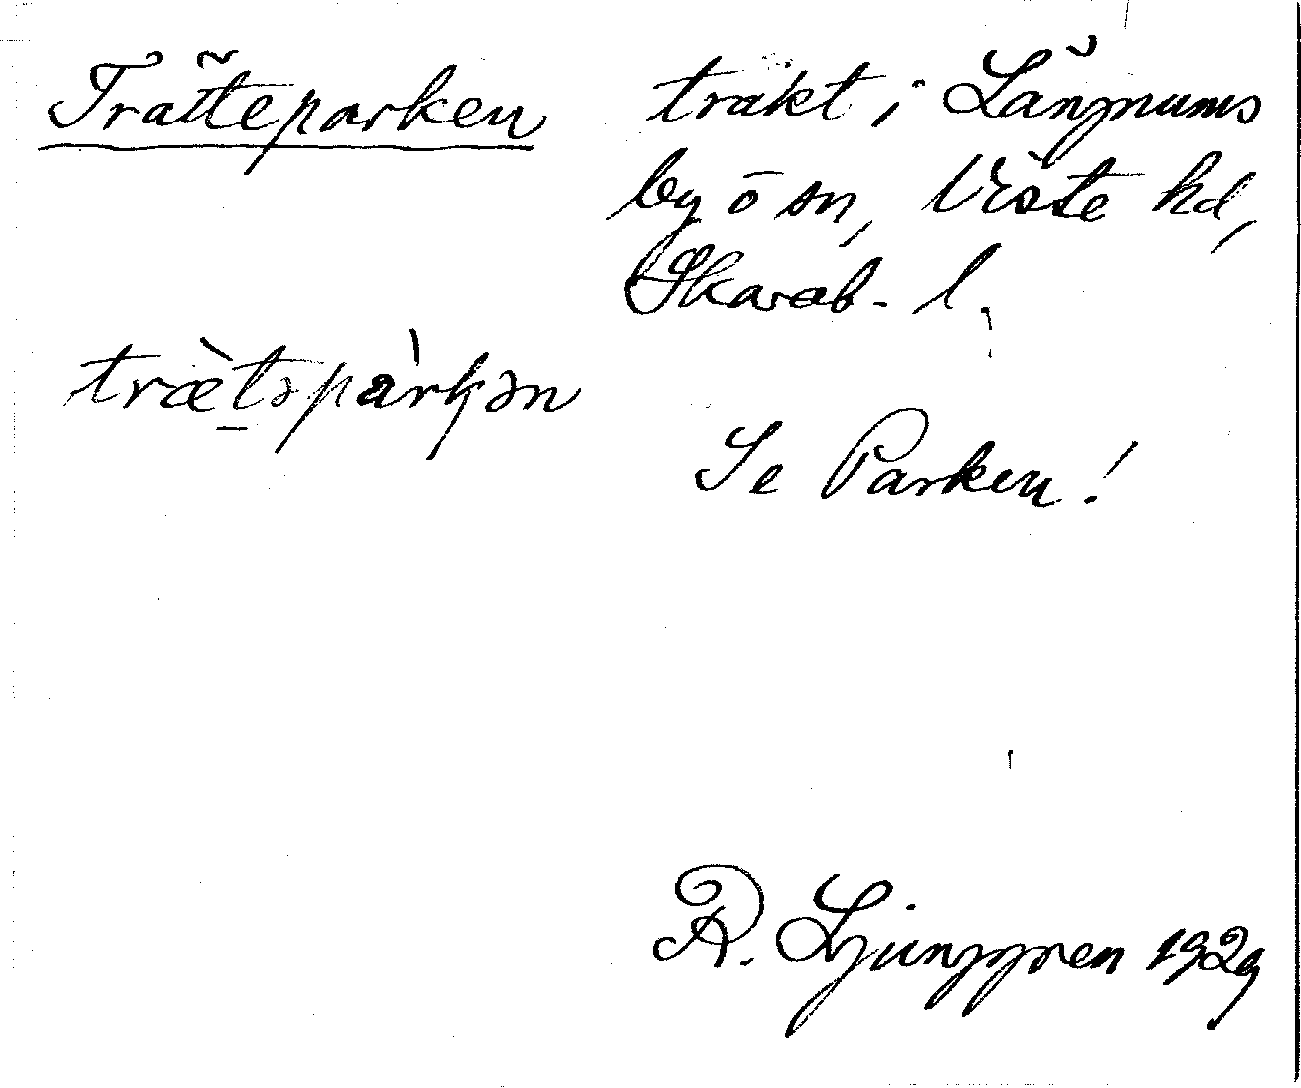 Träteparken
trakt i Långnums
by o sn, Viste hd,
Skarab. l.
træ̀təpàrkən
Se Parken!
R. Ljunggren 1929